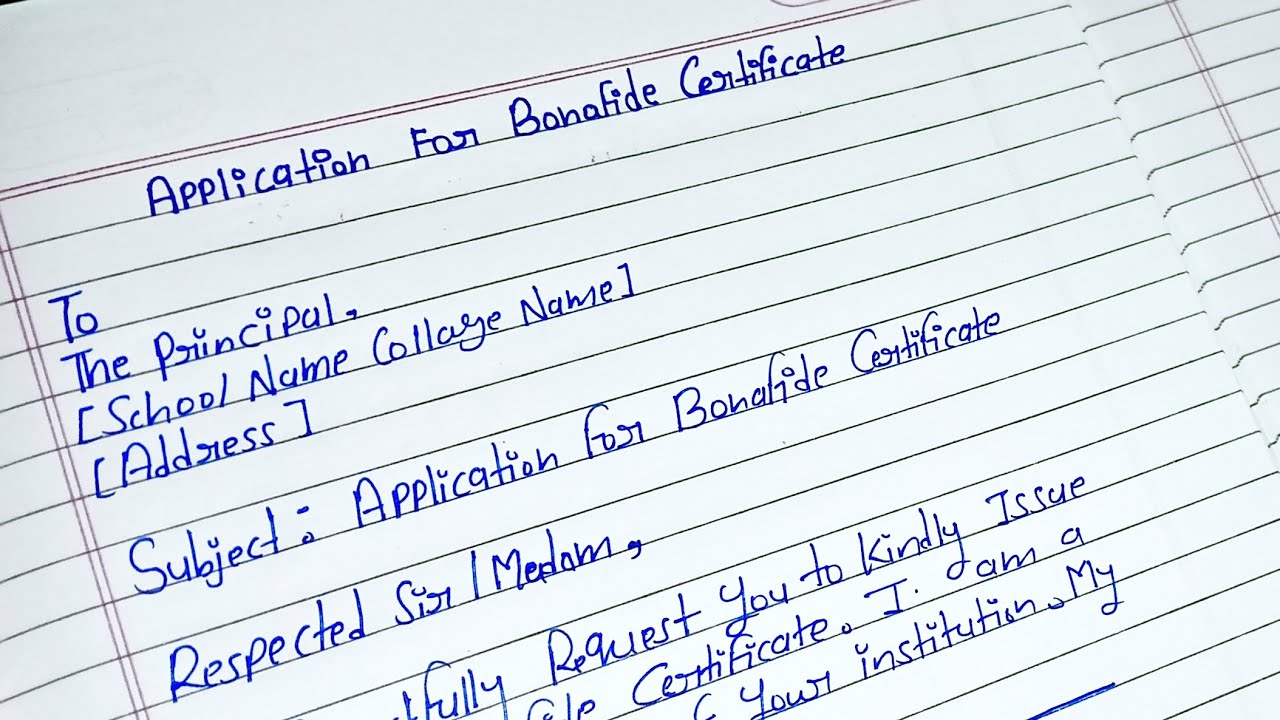 Application For Bonafide Certificate
To
The Principal,
[School Name Collage Name]
[Address]
Subject: Application for Bonafide Certificate
Respected Sir/Medam,
Request You to Kindly Issue
Certificate. I. am a
Your institution. My